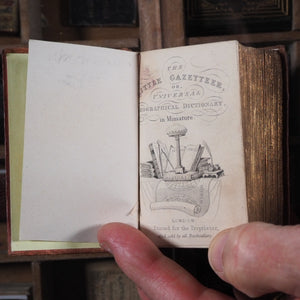 THE
GAZETTEER,
OR,
UNIVERSAL
GEOGRAPHICAL DICTIONARY,
in Miniature.
LONDON.
Printed for the Proprietor,
And sold by all Booksellers.